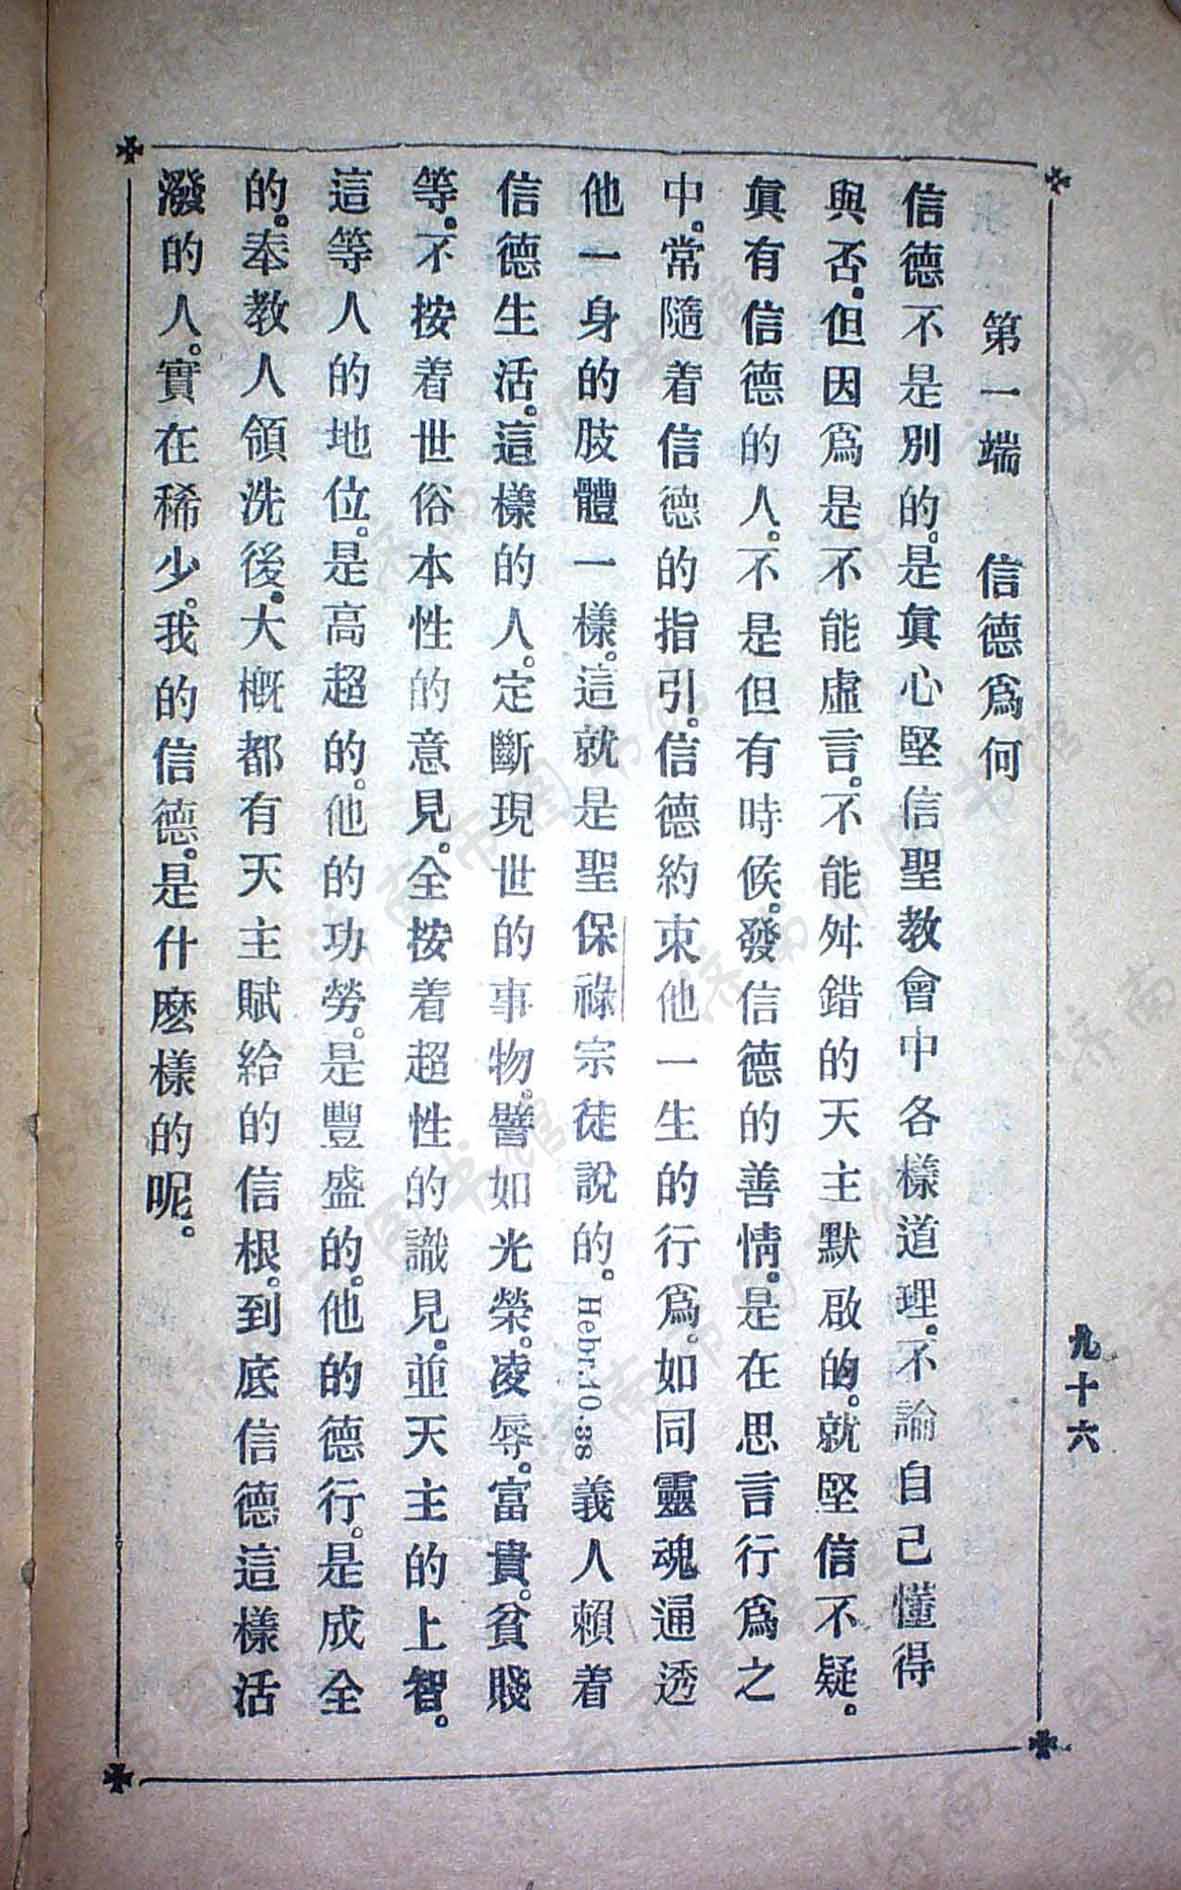 第一端　信德爲何
信德不是別的。是眞心堅信聖教會中各樣道理。不論自己懂得
與否。但因爲是不能虛言。不能舛錯的天主默啟的。就堅信不疑。
眞有信德的人。不是但有時候。發信德的善情。是在思言行爲之
中。常隨着信德的指引。信德約束他一生的行爲。如同靈魂通透
他一身的肢體一樣。這就是聖保祿宗徒說的。Hebr. 10.38義人賴着
信德生活。這樣的人。定斷現世的事物。譬如光榮。凌辱。富貴。貧賤
等。不按着世俗本性的意見。全按着超性的識見。並天主的上智。
這等人的地位。是高超的。他的功勞。是豐盛的。他的德行。是成全
的。奉教人領洗後。大概都有天主賦給的信根。到底信德這樣活
潑的人。實在稀少。我的信德。是什麽樣的呢。
九十六
济南市图书馆